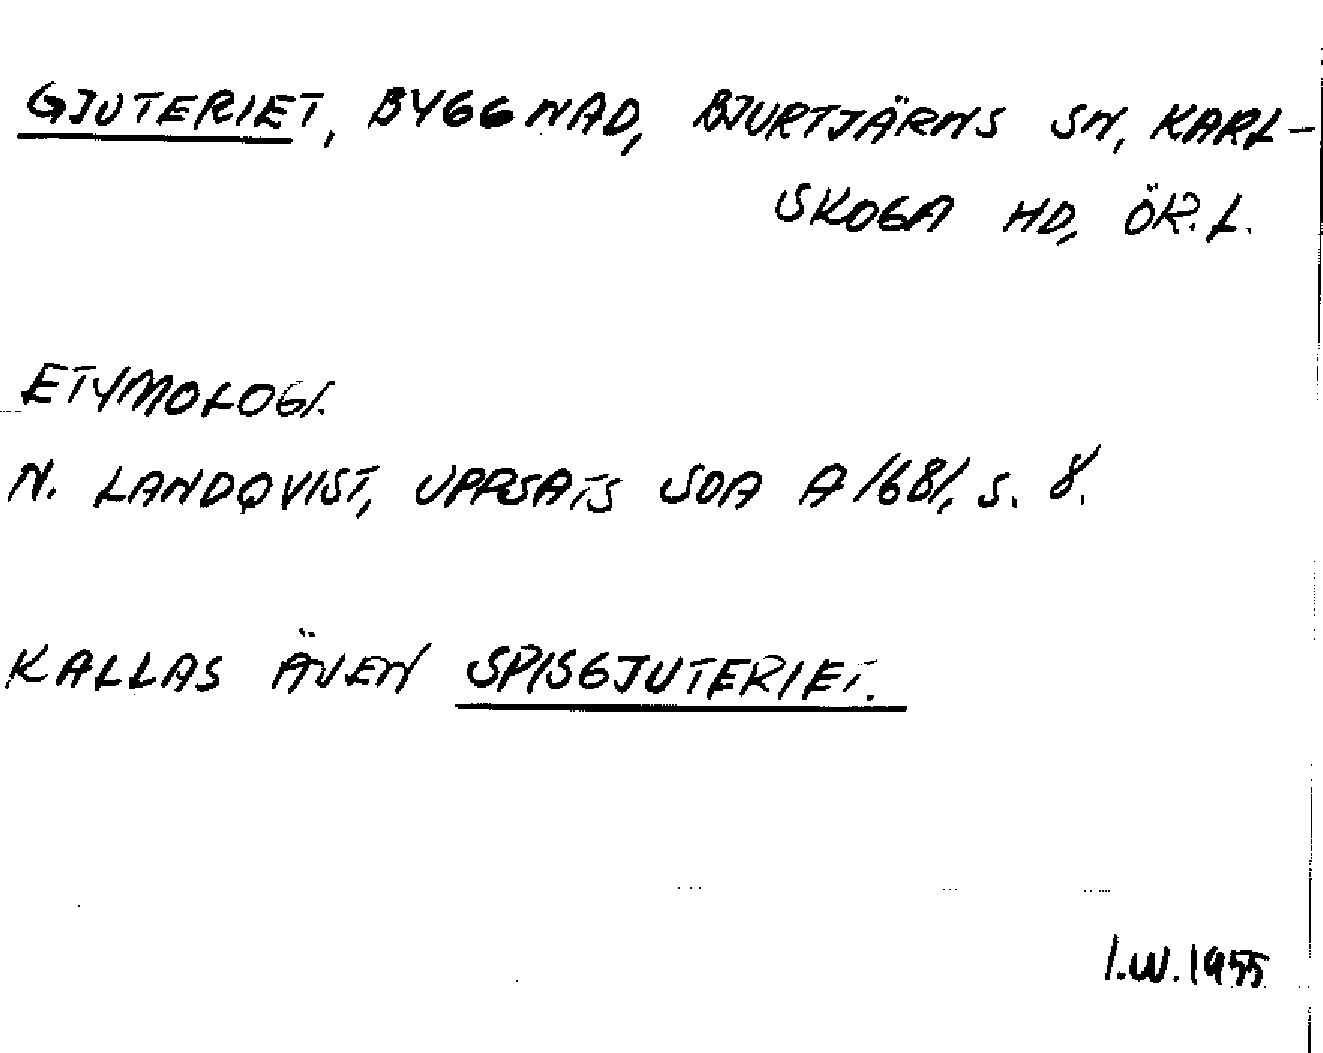 GJUTERIET, BYGGNAD, BJURTJÄRNS SN, KARL-
SKOGA HD, ÖR.L.
ETYMOLOGI.
N. LANDQVIST, UPPSATS SOA A/681, S. 8.
KALLAS ÄVEN SPISGJUTERIET.
I.W. 1955